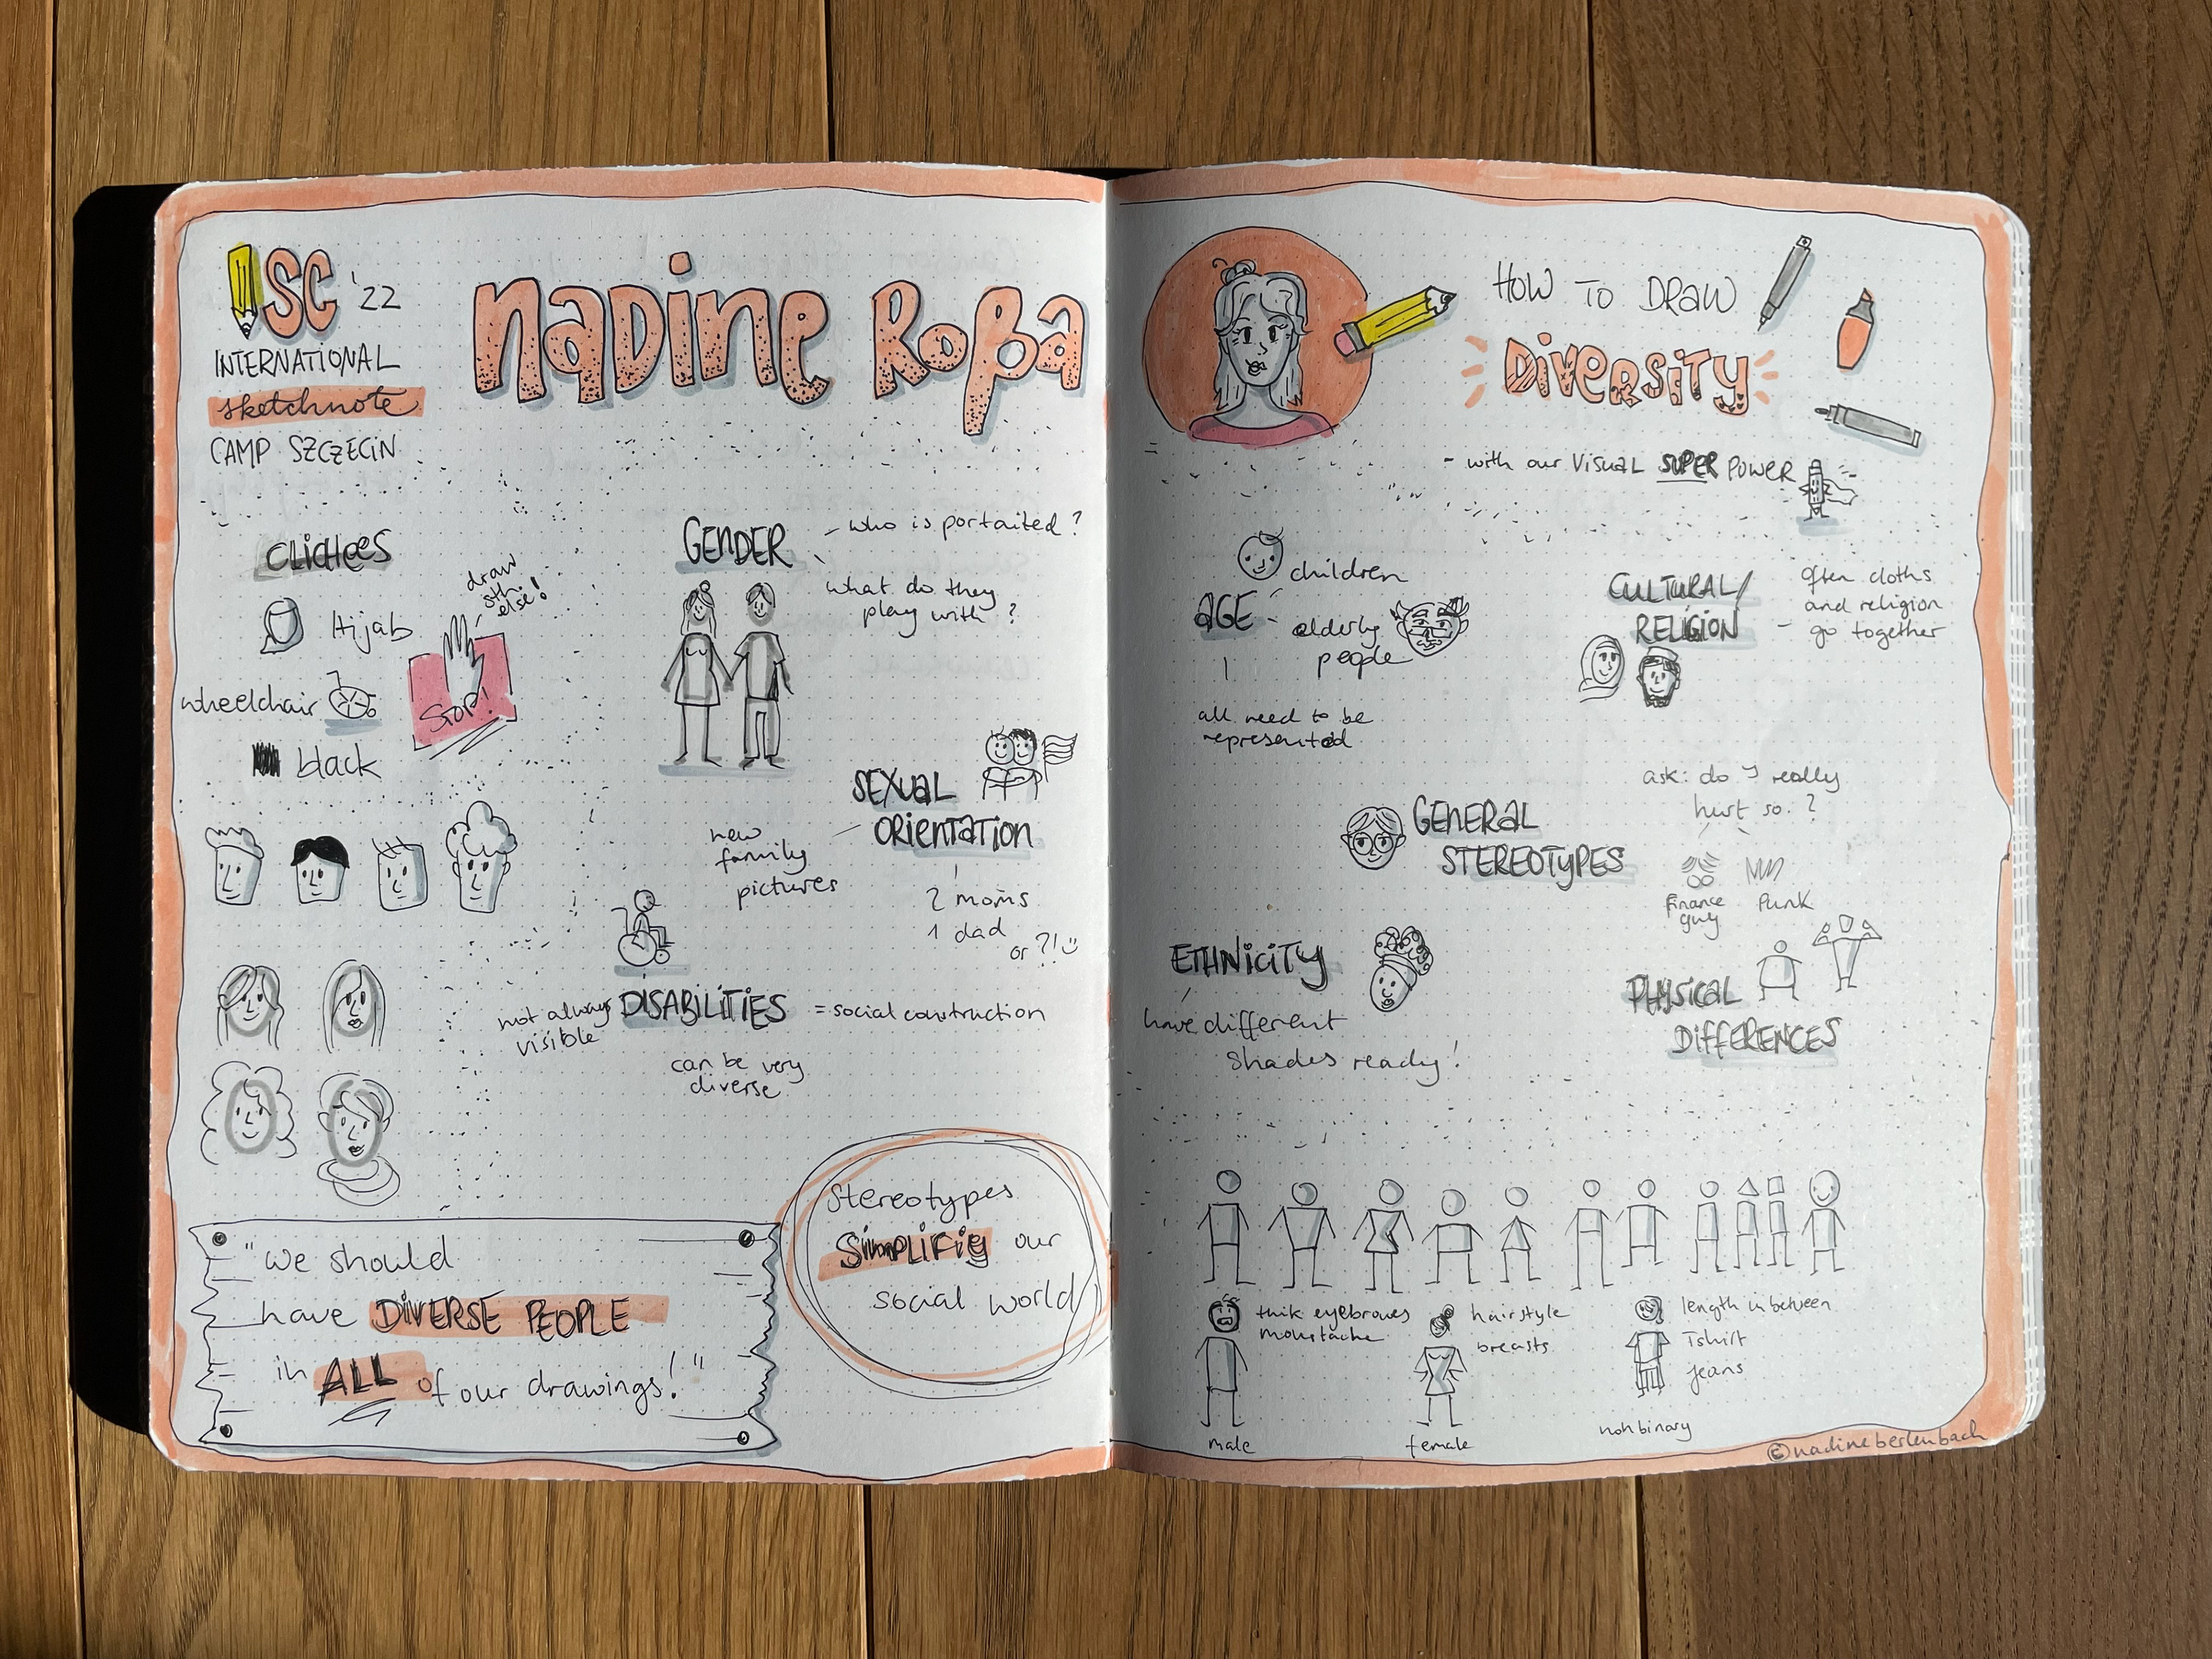 ISC '22
INTERNATIONAL
sketchnote
CAMP SZCZECIN
Nadine Roßa
CLICHEES
Hijab
wheelchair
black
draw
sth.
else!
STOP!
GENDER
- who is portaited?
what do they
play with?
SEXUAL
ORIENTATION
new
family
pictures
2 moms
1 dad
or ?!
not always
visible
DISABILITIES
= social construction
can be very
diverse
"we should
have DIVERSE PEOPLE
in ALL of our drawings!"
Stereotypes
SIMPLIFIY our
social world
HOW TO DRAW
DIVERSITY
- with our VISUAL SUPER POWER
children
AGE
elderly
people
all need to be
represented
CULTURAL/
RELIGION
often cloths
and religion
go together
GENERAL
STEREOTYPES
ask: do I really
hurt so.?
finance
guy
Punk
ETHNICITY
have different
shades ready!
PHYSICAL
DIFFERENCES
thik eyebrows
moustache
male
hairstyle
breasts
female
length in between
Tshirt
jeans
non binary
©nadineberlenbach